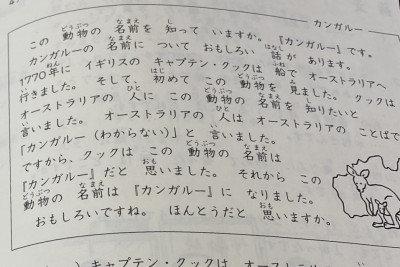 カンガルー
この 動物の 名前を 知って いますか。『カンガルー』です。
カンガルーの 名前に ついて おもしろい 話が あります。
1770年に イギリスの キャプテン・クックは 船で オーストラリアへ
行きました。 そして、初めて この 動物を 見ました。 クックは
オーストラリアの 人に この 動物の 名前を 知りたいと
言いました。 オーストラリアの 人は オーストラリアの ことばで
『カンガルー（わからない）』と 言いました。
ですから、クックは この 動物の 名前は
『カンガルー』だと 思いました。 それから この
動物の 名前は『カンガルー』に なりました。
おもしろいですね。 ほんとうだと 思いますか。
） キャプテン・クックは オーストラリ